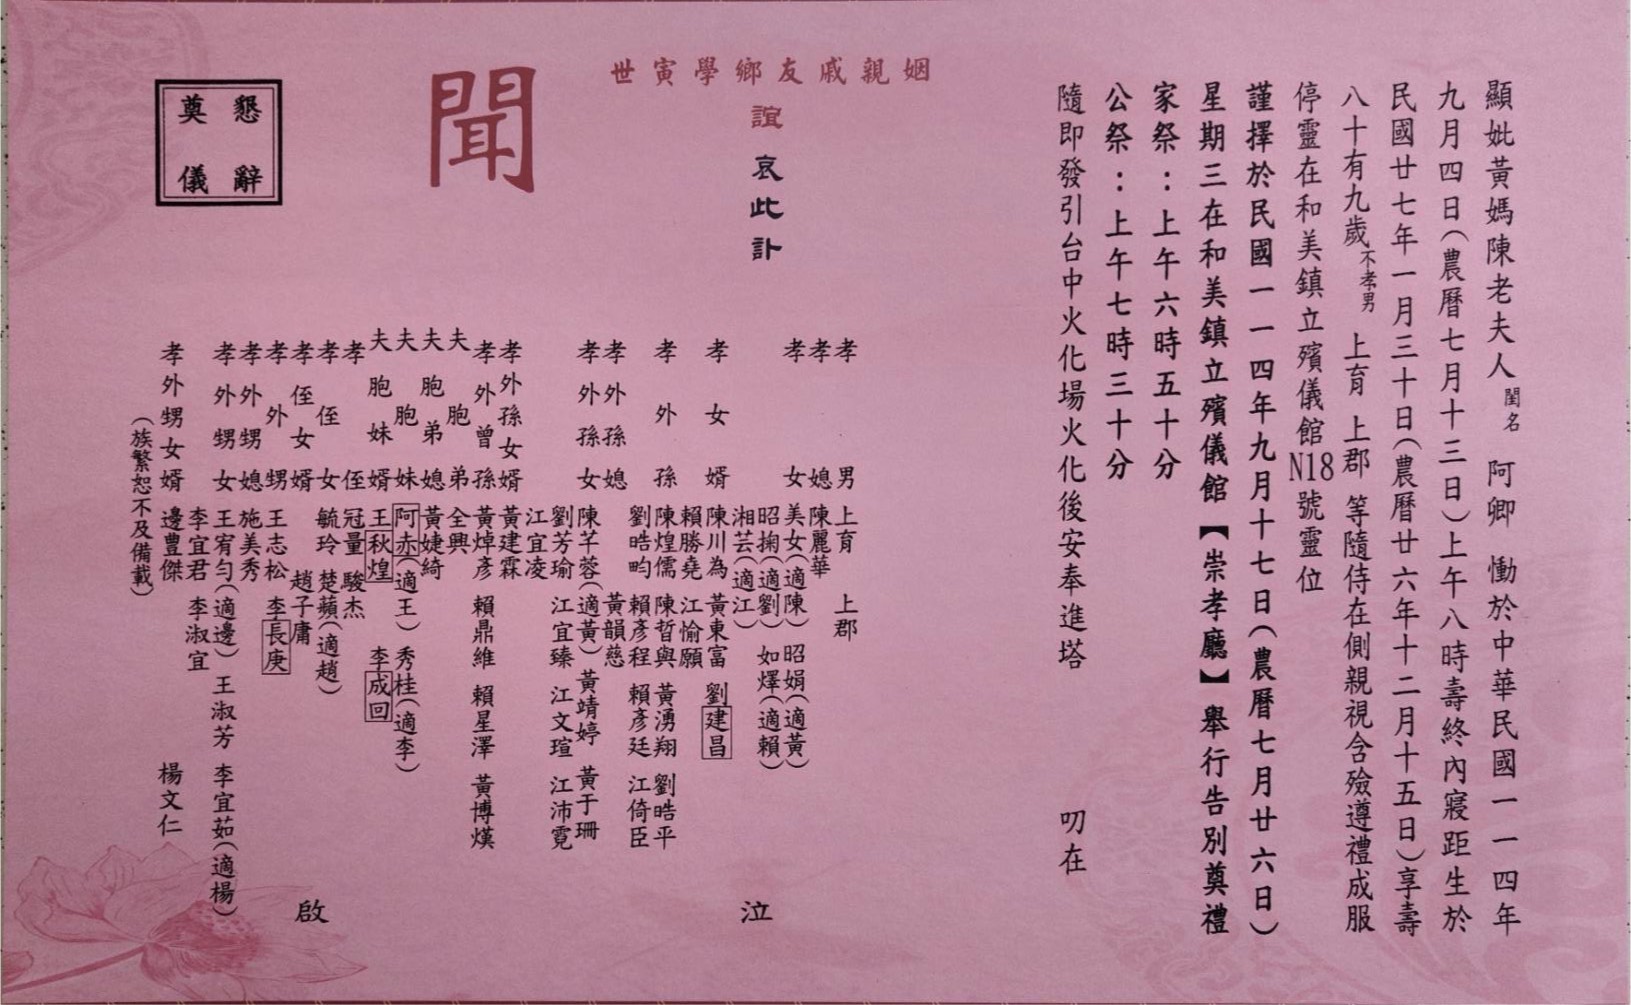 顯妣黃媽陳老夫人閨名阿卿 慟於中華民國一一四年
九月四日(農曆七月十三日)上午八時壽終內寢距生於
民國廿七年一月三十日(農曆廿六年十二月十五日)享壽
八十有九歲不孝男 上育 上郡 等隨侍在側親視含殮遵禮成服
停靈在和美鎮立殯儀館N18號靈位
謹擇於民國一一四年九月十七日(農曆七月廿六日)
星期三在和美鎮立殯儀館【崇孝廳】舉行告別奠禮
家祭:上午六時五十分
公祭:上午七時三十分
隨即發引台中火化場火化後安奉進塔 叨在
姻親戚友鄉學寅世
誼 哀此訃
聞
孝男 上育 上郡
孝媳 陳麗華
孝女 美女(適陳) 昭娟(適黃)
昭掬(適劉) 如燡(適賴)
湘芸(適江)
孝女婿 陳川為 黃東富 劉建昌
賴勝堯 江愉願
孝外孫 陳煌儒 陳哲與 黃湧翔 劉晧平
劉晧畇 賴彥程 賴彥廷 江倚臣
孝外孫媳 黃韻慈
孝外孫女 陳芊蓉(適黃) 黃靖婷 黃于珊
劉芳瑜 江宜臻 江文瑄 江沛霓
江宜凌
孝外孫女婿 黃建霖
孝外曾孫 黃焯彥 賴鼎維 賴星澤 黃博熯
夫胞弟 全興
夫胞弟媳 黃婕綺
夫胞妹 阿赤(適王) 秀桂(適李)
夫胞妹婿 王秋煌 李成回
孝侄 冠量 駿杰
孝侄女 毓玲 楚蘋(適趙)
孝侄女婿 趙子庸
孝外甥 王志松 李長庚
孝外甥媳 施美秀
孝外甥女 王宥勻(適邊) 王淑芳 李宜茹(適楊)
李宜君 李淑宜
孝外甥女婿 邊豊傑 楊文仁
(族繁恕不及備載)
泣
啟
懇辭
奠儀